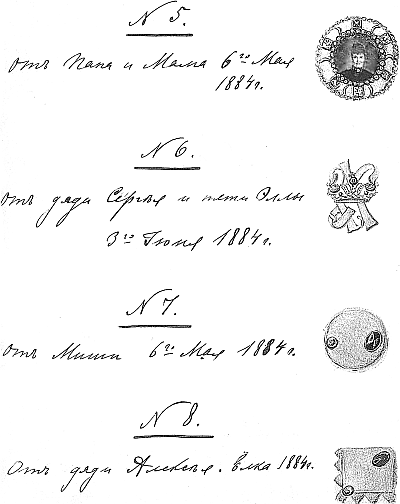 N 5.
отъ Папа и Мама 6го Мая
1884 г.
N 6.
отъ дяди Сергѣя и тети Эллы
3го Iюня 1884 г.
N 7.
отъ Миши 6го Мая 1884 г.
N 8.
отъ дяди Алексѣя. Ёлка 1884 г.